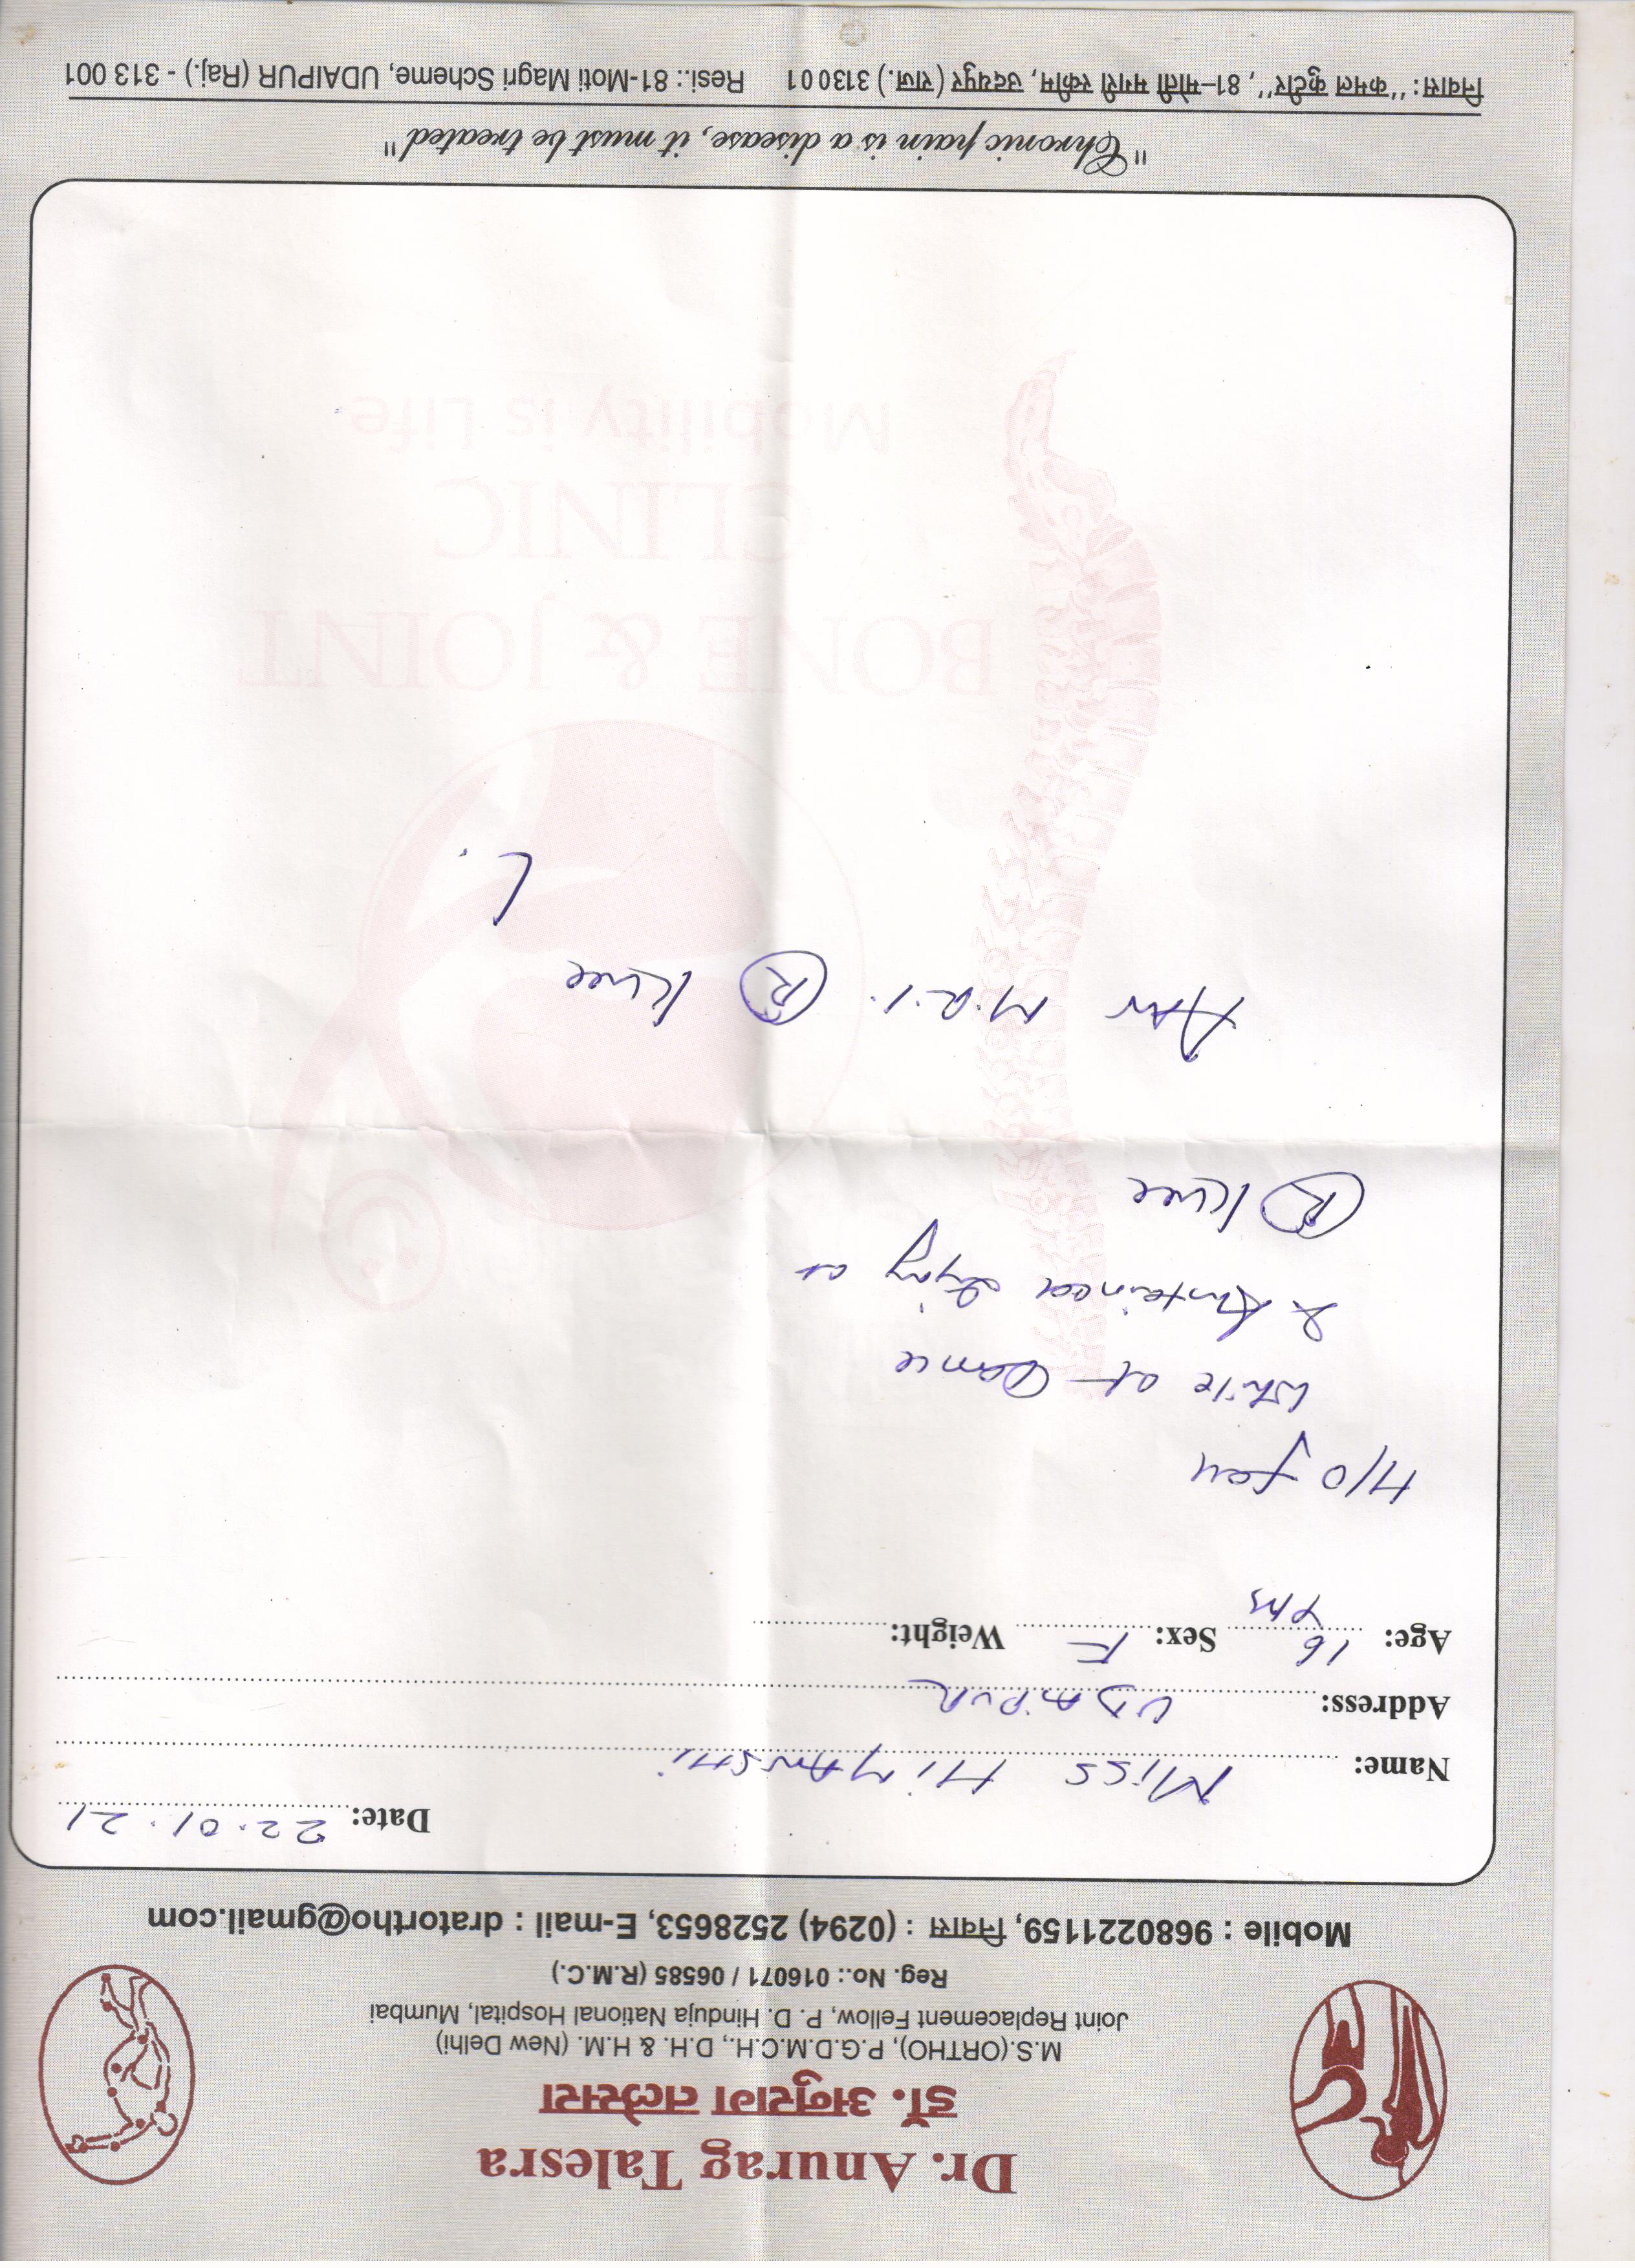 Dr. Anurag Talesra
डॉ. अनुराग तलेसरा
M.S.(ORTHO), P.G.D.M.C.H., D.H. & H.M. (New Delhi)
Joint Replacement Fellow, P. D. Hinduja National Hospital, Mumbai
Reg. No.: 016071 / 06585 (R.M.C.)
Mobile : 9680221159, निवास : (0294) 2528653, E-mail : dratortho@gmail.com
Date: 22.01.21
Name: Miss HiMANSHi
Address: UDAiPUR
Age: 16 yrs Sex: F Weight:
H/O fall
While at Dance
& Sustained Injury at
(R) Knee
Adv M.R.I. (R) Knee
BONE & JOINT
CLINIC
Mobility is Life
"Chronic pain is a disease, it must be treated"
निवास: "कमल कुटीर", 81-मोती मगरी स्कीम, उदयपुर (राज.) 313001 Resi.: 81-Moti Magri Scheme, UDAIPUR (Raj.) - 313 001